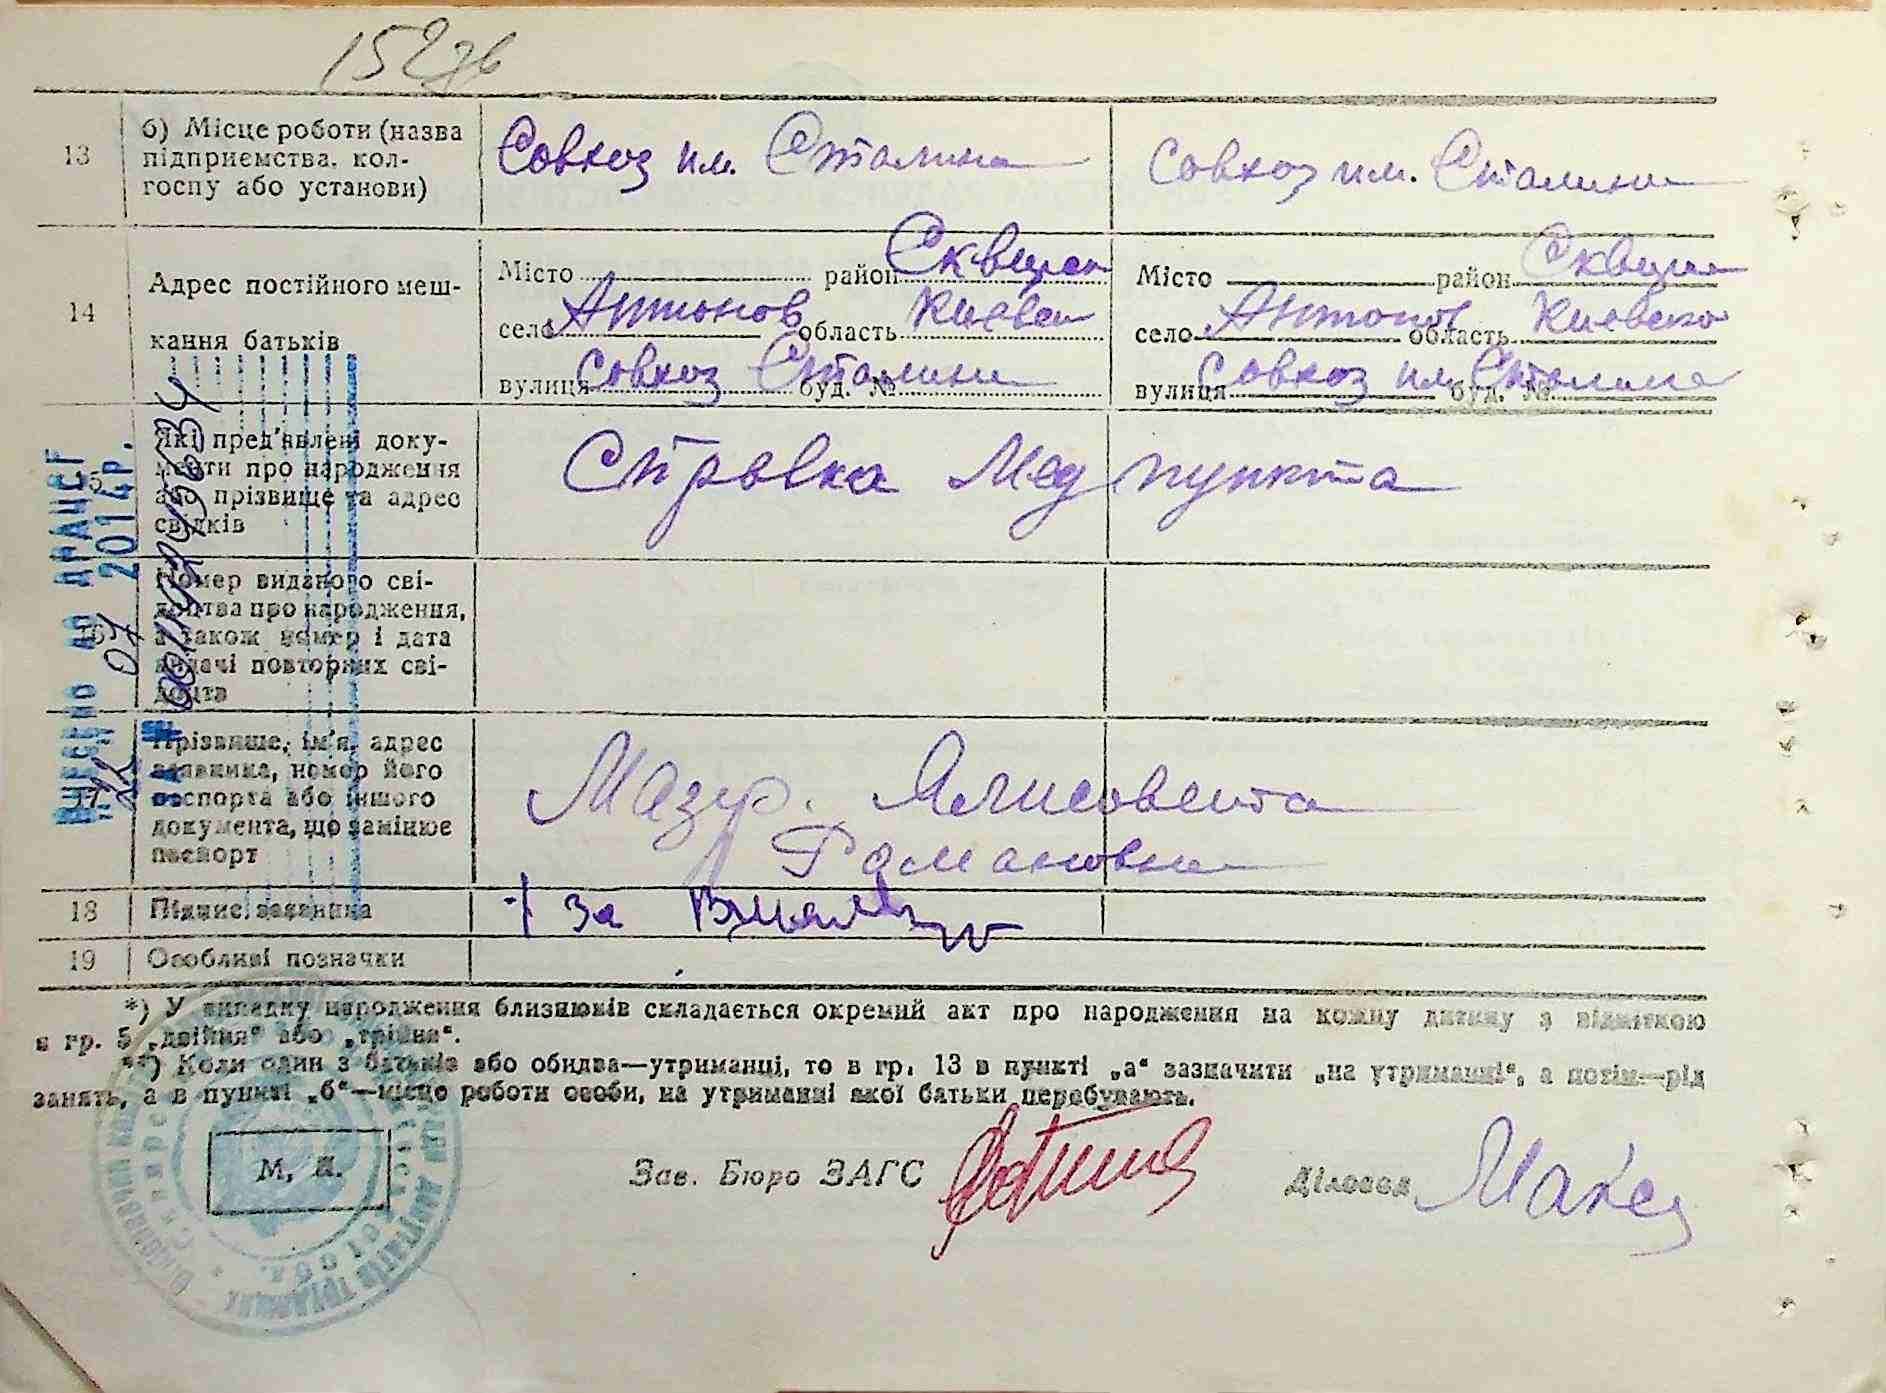 152
13
б) Місце роботи (назва
підприємства, кол-
госпу або установи)
Совхоз им. Сталина
Совхоз им. Сталина
14
Адрес постійного меш-
кання батьків
Місто район Сквирск
село Антонов область Киевск
вулиця Совхоз Сталина буд. №
Місто район Сквирск
село Антонов область Киевско
вулиця Совхоз им. Сталина буд. №
15
Які пред'явлені доку-
менти про народження
або прізвище та адрес
свідків
Справка Мед пункта
16
Номер виданого сві-
доцтва про народження,
а також номер і дата
видачі повторних сві-
доцтв
17
Прізвище, ім'я, адрес
заявника, номер його
паспорта або іншого
документа, що замінює
паспорт
Мазур. Ялисовента
Романовна
18
Підпис заявника
За
19
Особливі позначки
ВНЕСЕНО ДО ДРАЦСГ
22 07 2014р.
*) У випадку народження близнюків складається окремий акт про народження на кожну дитину з відміткою
в гр. 5 „двійня" або „трійня".
**) Коли один з батьків або обидва—утриманці, то в гр. 13 в пункті „а" зазначити „на утриманні", а потім—рід
занять, а в пункті „б"—місце роботи особи, на утриманні якої батьки перебувають.
М. П.
Зав. Бюро ЗАГС
Діловод